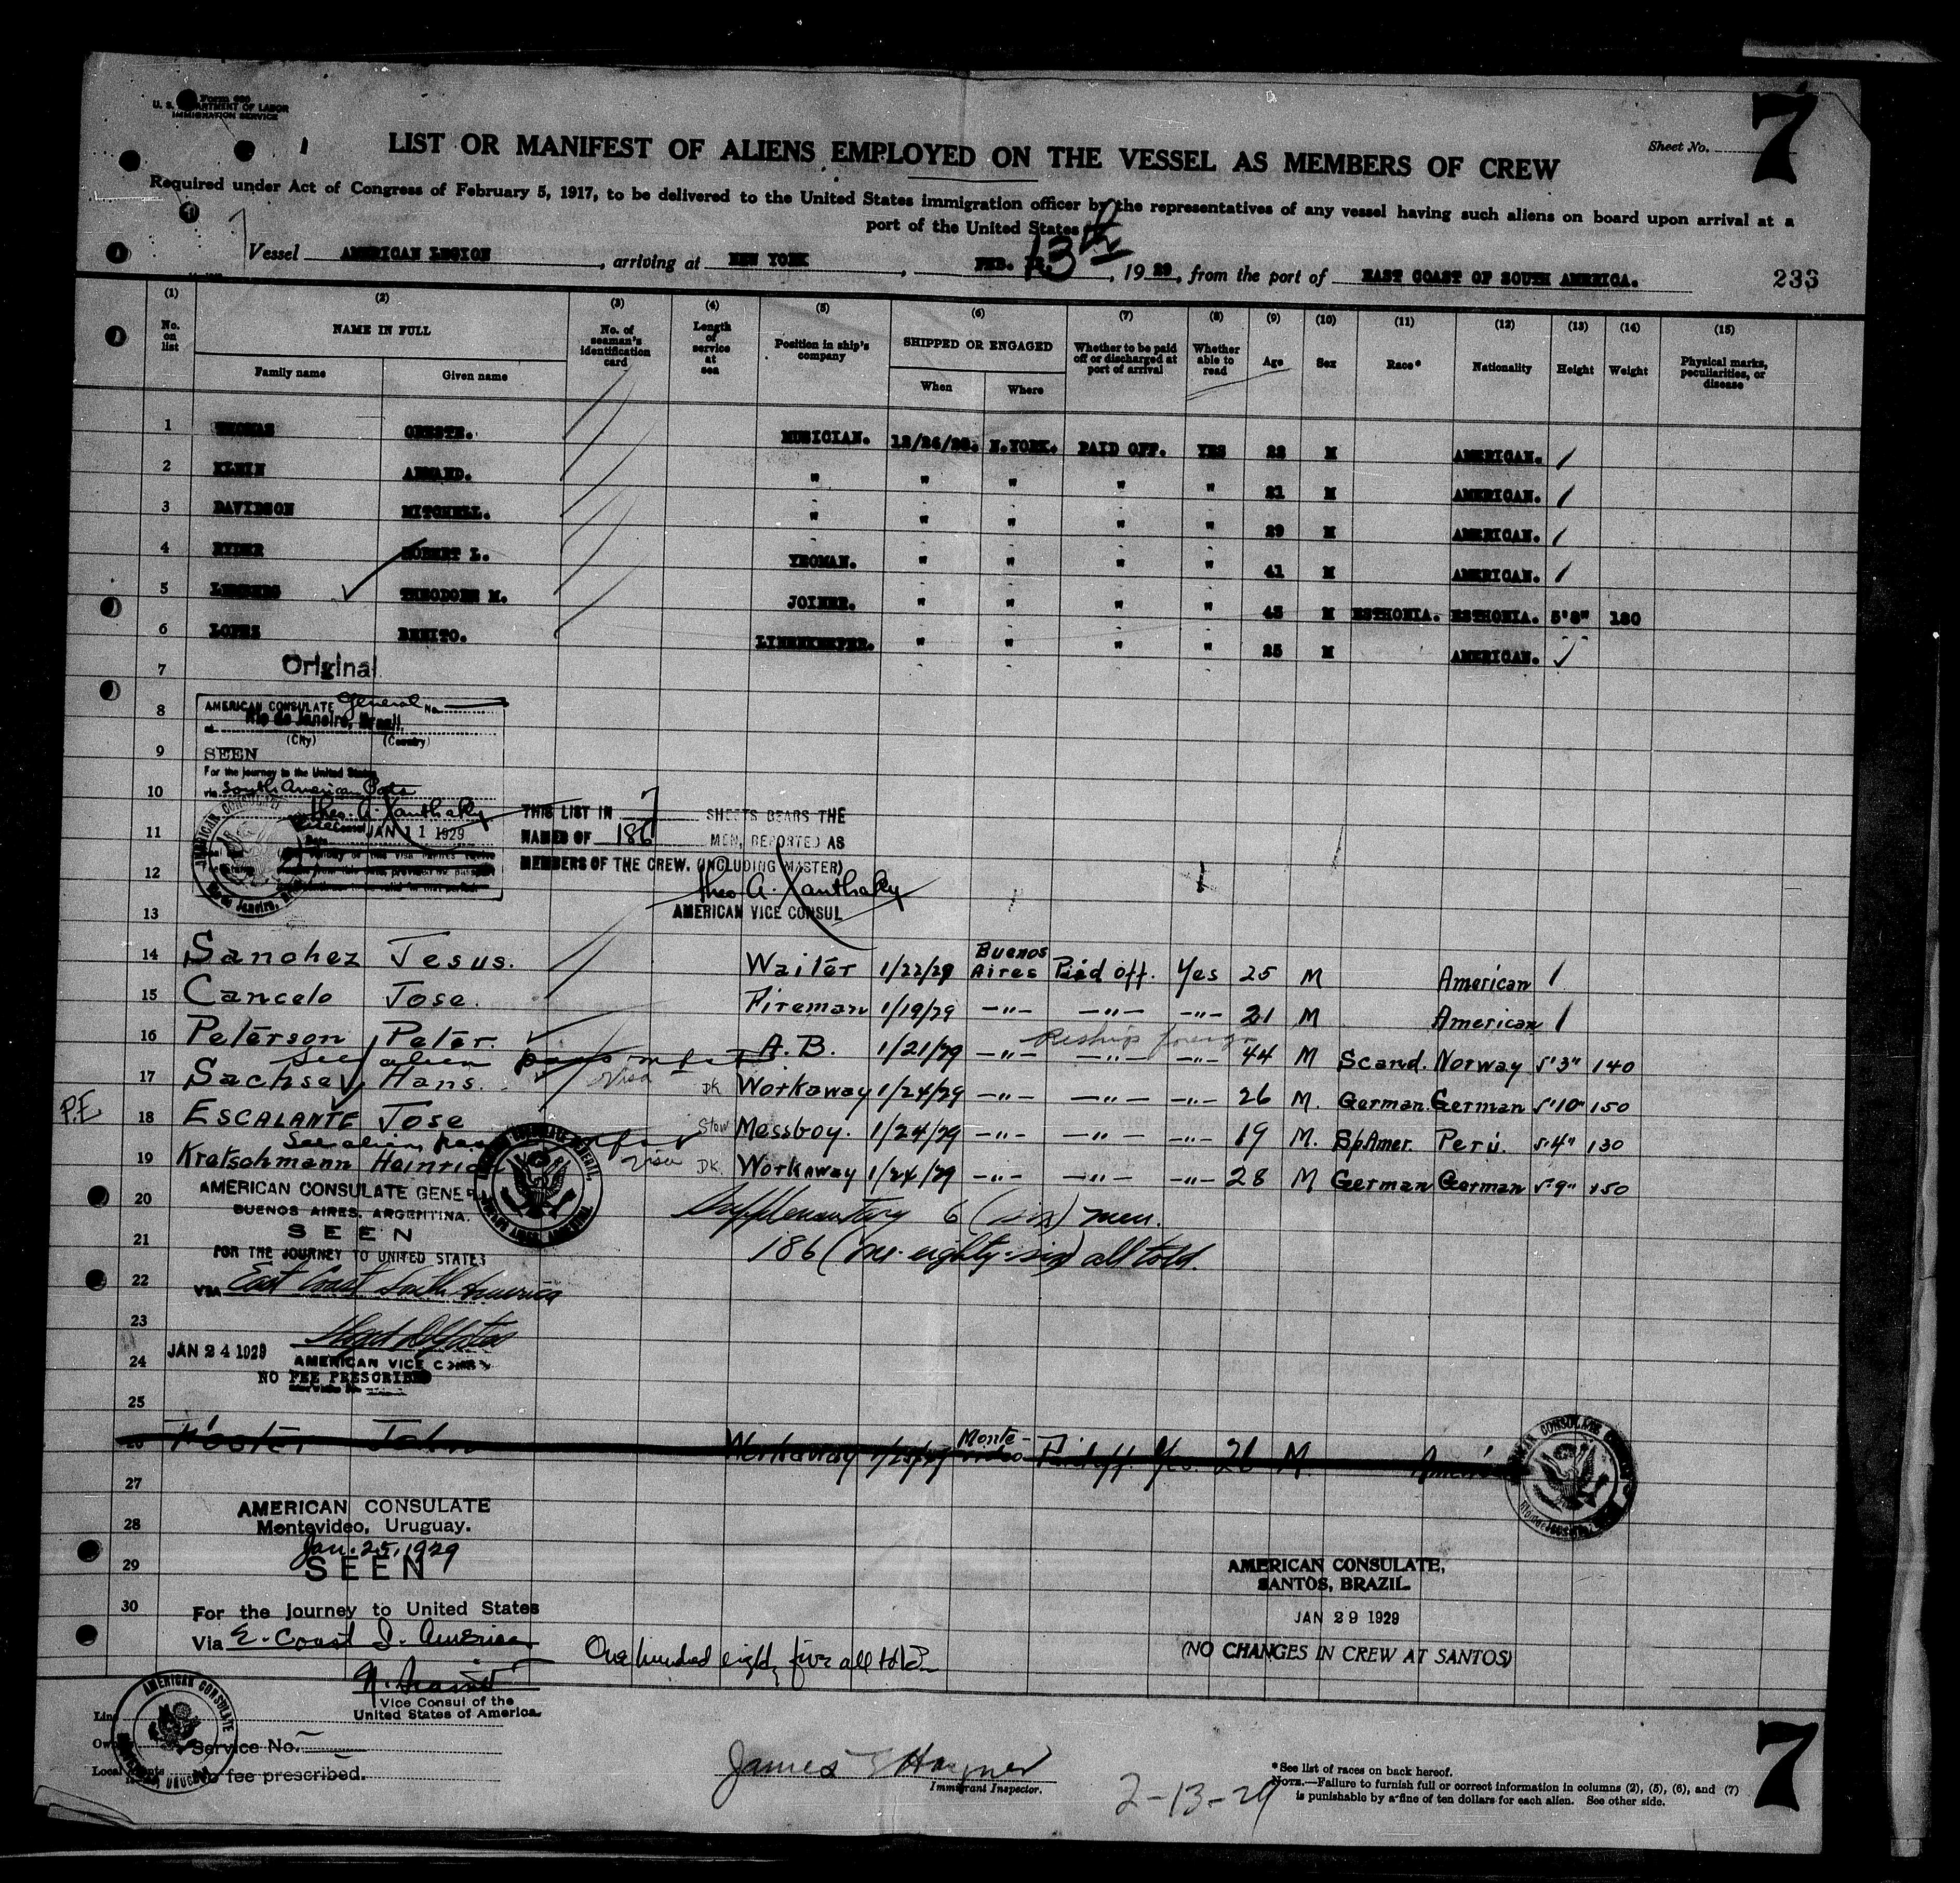 Form 680
U. S. DEPARTMENT OF LABOR
IMMIGRATION SERVICE
Sheet No. 7
LIST OR MANIFEST OF ALIENS EMPLOYED ON THE VESSEL AS MEMBERS OF CREW
Required under Act of Congress of February 5, 1917, to be delivered to the United States immigration officer by the representatives of any vessel having such aliens on board upon arrival at a
port of the United States
Vessel AMERICAN LEGION, arriving at NEW YORK, FEB. 13th, 1929, from the port of EAST COAST OF SOUTH AMERICA.
233
(1) (2) (3) (4) (5) (6) (7) (8) (9) (10) (11) (12) (13) (14) (15)
No. on list NAME IN FULL No. of seaman's identification card Length of service at sea Position in ship's company SHIPPED OR ENGAGED Whether to be paid off or discharged at port of arrival Whether able to read Age Sex Race* Nationality Height Weight Physical marks, peculiarities, or disease
Family name Given name When Where
1 THOMAS ORESTE. MUSICIAN. 12/26/28. N.YORK. PAID OFF. YES 22 M AMERICAN.
2 KLEIN ARMAND. " " " " " 21 M AMERICAN.
3 DAVIDSON MITCHELL. " " " " " 29 M AMERICAN.
4 RYDER ROBERT L. YEOMAN. " " " " 41 M AMERICAN.
5 THEODORE M. JOINER. " " " " 45 M ESTHONIA. ESTHONIA. 5'8" 180
6 LOPEZ BENITO. LINENKEEPER. " " " " 25 M AMERICAN.
7 Original
8 AMERICAN CONSULATE General No.
at Rio de Janeiro, Brazil.
(City) (Country)
9 SEEN
For the journey to the United States
10 via South American Ports
Theo. A. Xanthaky
11 JAN 11 1929
Date
THIS LIST IN 7 SHEETS BEARS THE
NAMES OF 186 MEN, REPORTED AS
MEMBERS OF THE CREW, (INCLUDING MASTER)
12
Theo A. Xanthaky
13 AMERICAN VICE CONSUL
14 Sanchez Jesus. Waiter 1/22/29 Buenos Aires Paid off. Yes 25 M American
15 Cancelo Jose. Fireman 1/19/29 -"- -"- -"- 21 M American
Reship foreign
16 Peterson Peter. A.B. 1/21/29 -"- -"- -"- 44 M Scand. Norway 5'3" 140
See alien passport for visa
17 Sachse Hans. DK Workaway 1/24/29 -"- -"- -"- 26 M. German. German 5'10" 150
P.E
18 ESCALANTE Jose Stow Messboy. 1/24/29 -"- -"- -"- 19 M. Sp Amer. Perú. 5'4" 130
See alien pass for visa
19 Kratschmann Heinrich DK Workaway 1/24/29 -"- -"- -"- 28 M German German 5'9" 150
20 AMERICAN CONSULATE GENERAL
BUENOS AIRES, ARGENTINA.
Supplementary 6 (six) men.
21 SEEN
186 (one-eighty-six) all told.
FOR THE JOURNEY TO UNITED STATES
22 VIA East Coast South America
23
24 JAN 24 1929
AMERICAN VICE CONSUL
NO FEE PRESCRIBED
25
26 Foster John Workaway Montevideo Paid off. Yes. 26 M. American
27
AMERICAN CONSULATE
28 Montevideo, Uruguay.
Jan. 25, 1929
29 SEEN
AMERICAN CONSULATE,
SANTOS, BRAZIL.
30 For the journey to United States
JAN 29 1929
Via E. Coast S. America
One hundred eighty five all told
(NO CHANGES IN CREW AT SANTOS)
Vice Consul of the
United States of America.
AMERICAN CONSULATE
Service No.
No fee prescribed.
Local Agents
James Hayner
Immigrant Inspector.
2-13-29
*See list of races on back hereof.
NOTE.—Failure to furnish full or correct information in columns (2), (5), (6), and (7)
is punishable by a fine of ten dollars for each alien. See other side.
7